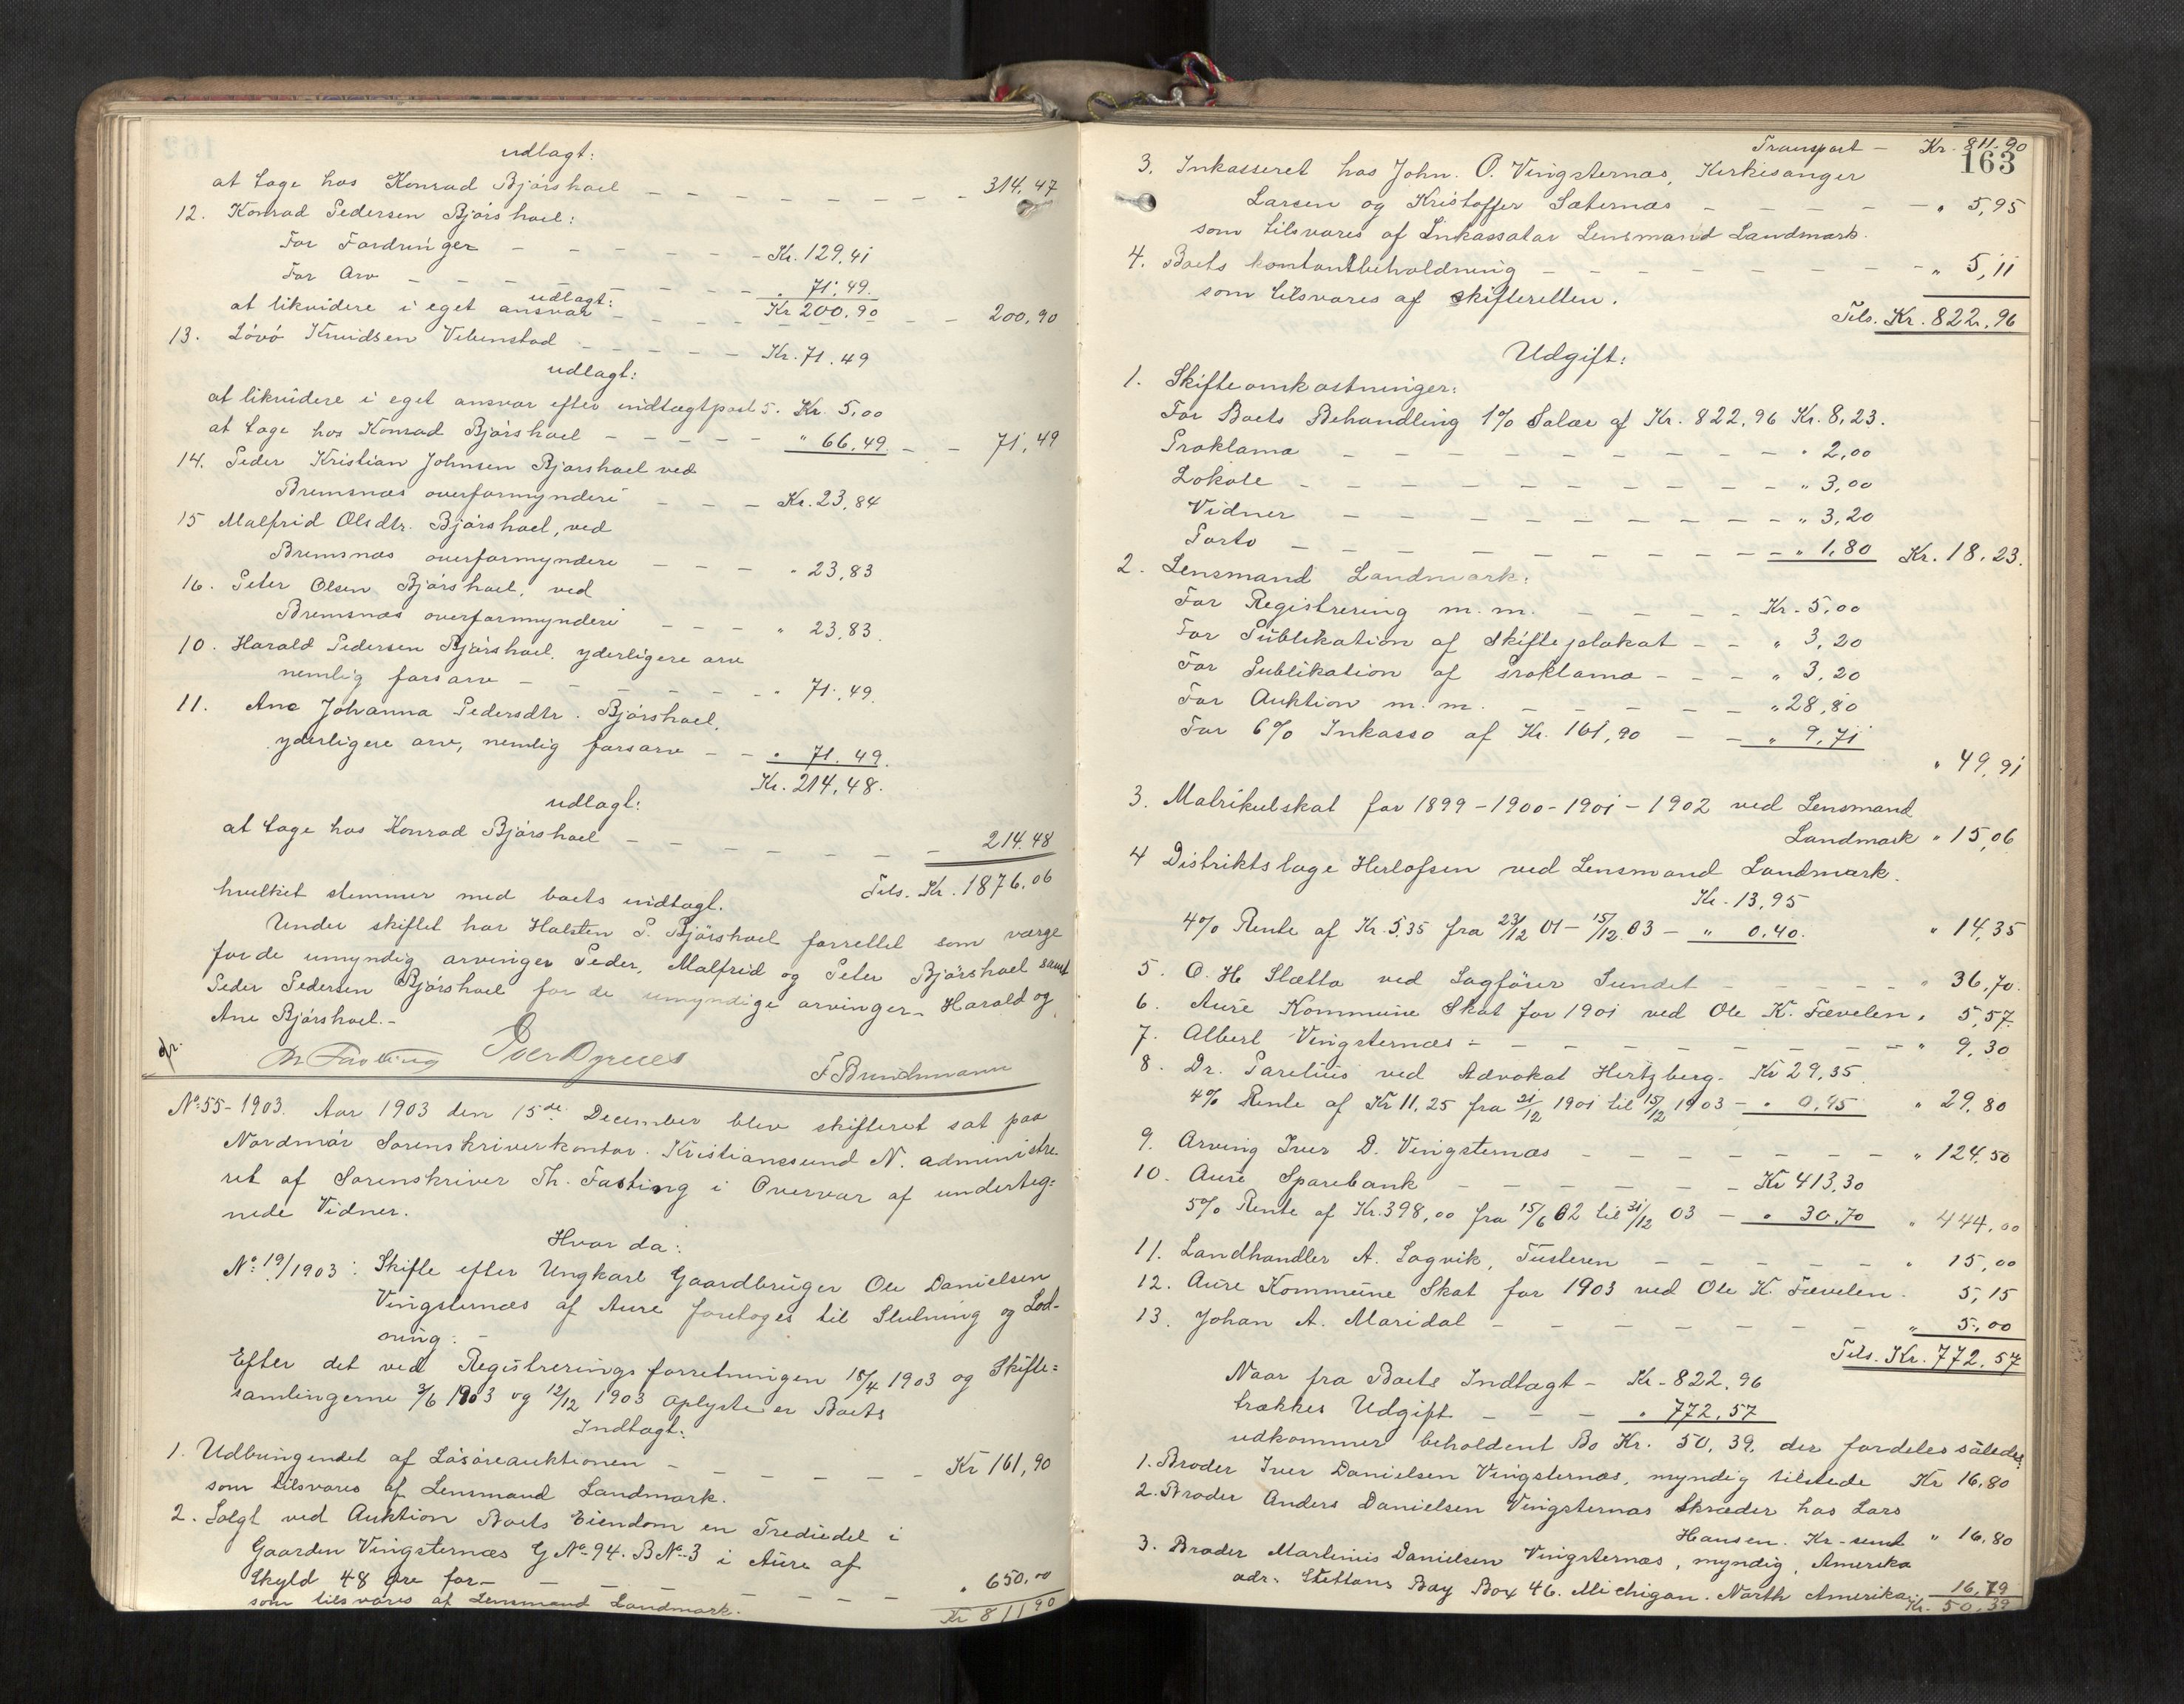 udlagt:
at tage hos Konrad Bjørshoel — — — — — — — 314,47
12. Konrad Pedersen Bjørshoel:
For Fordringer — — — — — Kr. 129,41
For Arv — — — — — — — „ 71,49.
udlagt: Kr 200,90
at likvidere i eget ansvar — — — — — 200,90
13. Lovö Knudsen Vibenstad — — — — — Kr. 71.49
udlagt:
at likvidere i eget ansvar efter indtægtpost 5. Kr. 5,00
at tage hos Konrad Bjørshoel — — — — — „ 66,49. — — 71,49
14. Peder Kristian Johnsen Bjørshoel ved
Bremsnæs overformynderi — — — Kr. 23,84
15 Malfrid Olsdtr. Bjørshoel, ved
Bremsnæs overformyndere — — — „ 23,83
16. Peter Olsen Bjørshoel, ved
Bremsnæs overformynderi — — — „ 23,83.
10. Harald Pedersen Bjørshoel, yderligere arv
nemlig farsarv — — — — — — „ 71,49.
11. Ane Johanna Pedersdtr. Bjørshoel,
yderligere arv, nemlig farsarv — — „ 71.49.
Kr. 214,48.
udlagt:
at tage hos Konrad Bjørshoel — — — — — — 214.48
Tils. Kr. 1876,06
hvilket stemmer med boets indtægt.
Under skiftet har Halsten P. Bjørshoel forrettet som værge
for de umyndig arvinger Peder, Malfrid og Peter Bjørshoel samt
Peder Pedersen Bjørshoel for de umyndige arvinger Harald og
Ane Bjørshoel.—
Th. Fasting F. Brinchmann
No 55–1903. Aar 1903 den 15de December blev skifteret sat paa
Nordmør Sorenskriverkontor. Kristianssund N. administre-
ret af Sorenskriver Th. Fasting i Overvær af underteg=
nede Vidner.
Hvor da:
No 19/1903: Skifte efter Ungkarl Gaardbruger Ole Danielsen
Vingsternæs af Aure foretoges til Slutning og Lod-
ning.—
Efter det ved Registreringsforretningen 18/4 1903 og Skifte=
samlingerne 3/6 1903 og 12/12 1903 oplyste er Boets
Indtægt:
1. Udbringendet af Løsøreauktionen — — — — — — Kr 161,90
som tilsvares af Lensmand Landmark.
2. Solgt ved Auktion Boets Eiendom en Trediedel i
Gaarden Vingsternæs G No 94. B No 3 i Aure af
Skyld 48 øre for — — — — — — — — „ 650,00
som tilsvares af Lensmand Landmark. Kr 811 90
Transport — Kr. 811.90
163
3. Inkasseret hos John. O. Vingsternæs, Kirkesanger
Larsen og Kristoffer Sæternæs — — — — — „ 5,95
som tilsvares af Inkassator Lensmand Landmark.
4. Boets kontantbeholdning — — — — — — — „ 5,11
som tilsvares af skifteretten.
Tils. Kr. 822,96
Udgift:
1. Skifteomkostninger:
For Boets Behandling 1% Salær af Kr. 822,96 Kr. 8,23.
Proklama — — — — — — — — „ 2,00
Lokale — — — — — — — — — „ 3,00
Vidner — — — — — — — — — „ 3,20
Porto — — — — — — — — — „ 1,80 Kr. 18.23.
2. Lensmand Landmark:
For Registrering m. m. — — — — Kr. 5,00
For Publikation af skifteplakat — — „ 3,20
For Publikation af Proklama — — — „ 3,20
For Auktion m. m. — — — — — „ 28,80
For 6% Inkasso af Kr. 161,90 — — „ 9,71
„ 49,91
3. Matrikulskat for 1899–1900–1901–1902 ved Lensmand
Landmark „ 15,06
4 Distriktslæge Herlofsen ved Lensmand Landmark.
Kr. 13,95
4% Rente af Kr. 5,35 fra 23/12 01 – 15/12 03 — „ 0,40. „ 14,35
5. O. H Slætta ved Sagfører Sundet — — — — — „ 36,70.
6. Aure Kommune Skat for 1901 ved Ole K. Tævelen „ 5,57.
7. Albert Vingsternæs — — — — — — — — — „ 9,30
8. Dr. Parelius ved Advokat Hertzberg. Kr 29,35
4% Rente af Kr 11,25 fra 21/12 1901 til 15/12 1903 — „ 0,45 „ 29,80
9. Arving Iver D. Vingsternæs — — — — — — — „ 124,50
10. Aure Sparebank — — — — — — Kr 413,30
5% Rente af Kr. 398,00 fra 15/6 02 til 31/12 03 — „ 30,70 „ 444,00
11. Landhandler A. Sagvik, Tusteren — — — — — „ 15,00
12. Aure Kommune Skat for 1903 ved Ole K. Tævelen. 5,15
13. Johan A. Maridal — — — — — — — „ 5,00
Tils. Kr. 772,57
Naar fra Boets Indtægt — Kr. 822,96
trækkes Udgift — — — „ 772,57
udkommer beholdent Bo Kr. 50,39. der fordeles således:
1. Broder Iver Danielsen Vingsternæs, myndig tilstede Kr 16,80
2. Broder Anders Danielsen Vingsternæs Skræder hos Lars
Hansen. Kr-sund „ 16,80
3. Broder Martinus Danielsen Vingsternæs, myndig, Amerika
adr. Stettons Bay Box 46. Michigan. North Amerika. 16,79
Kr. 50,39